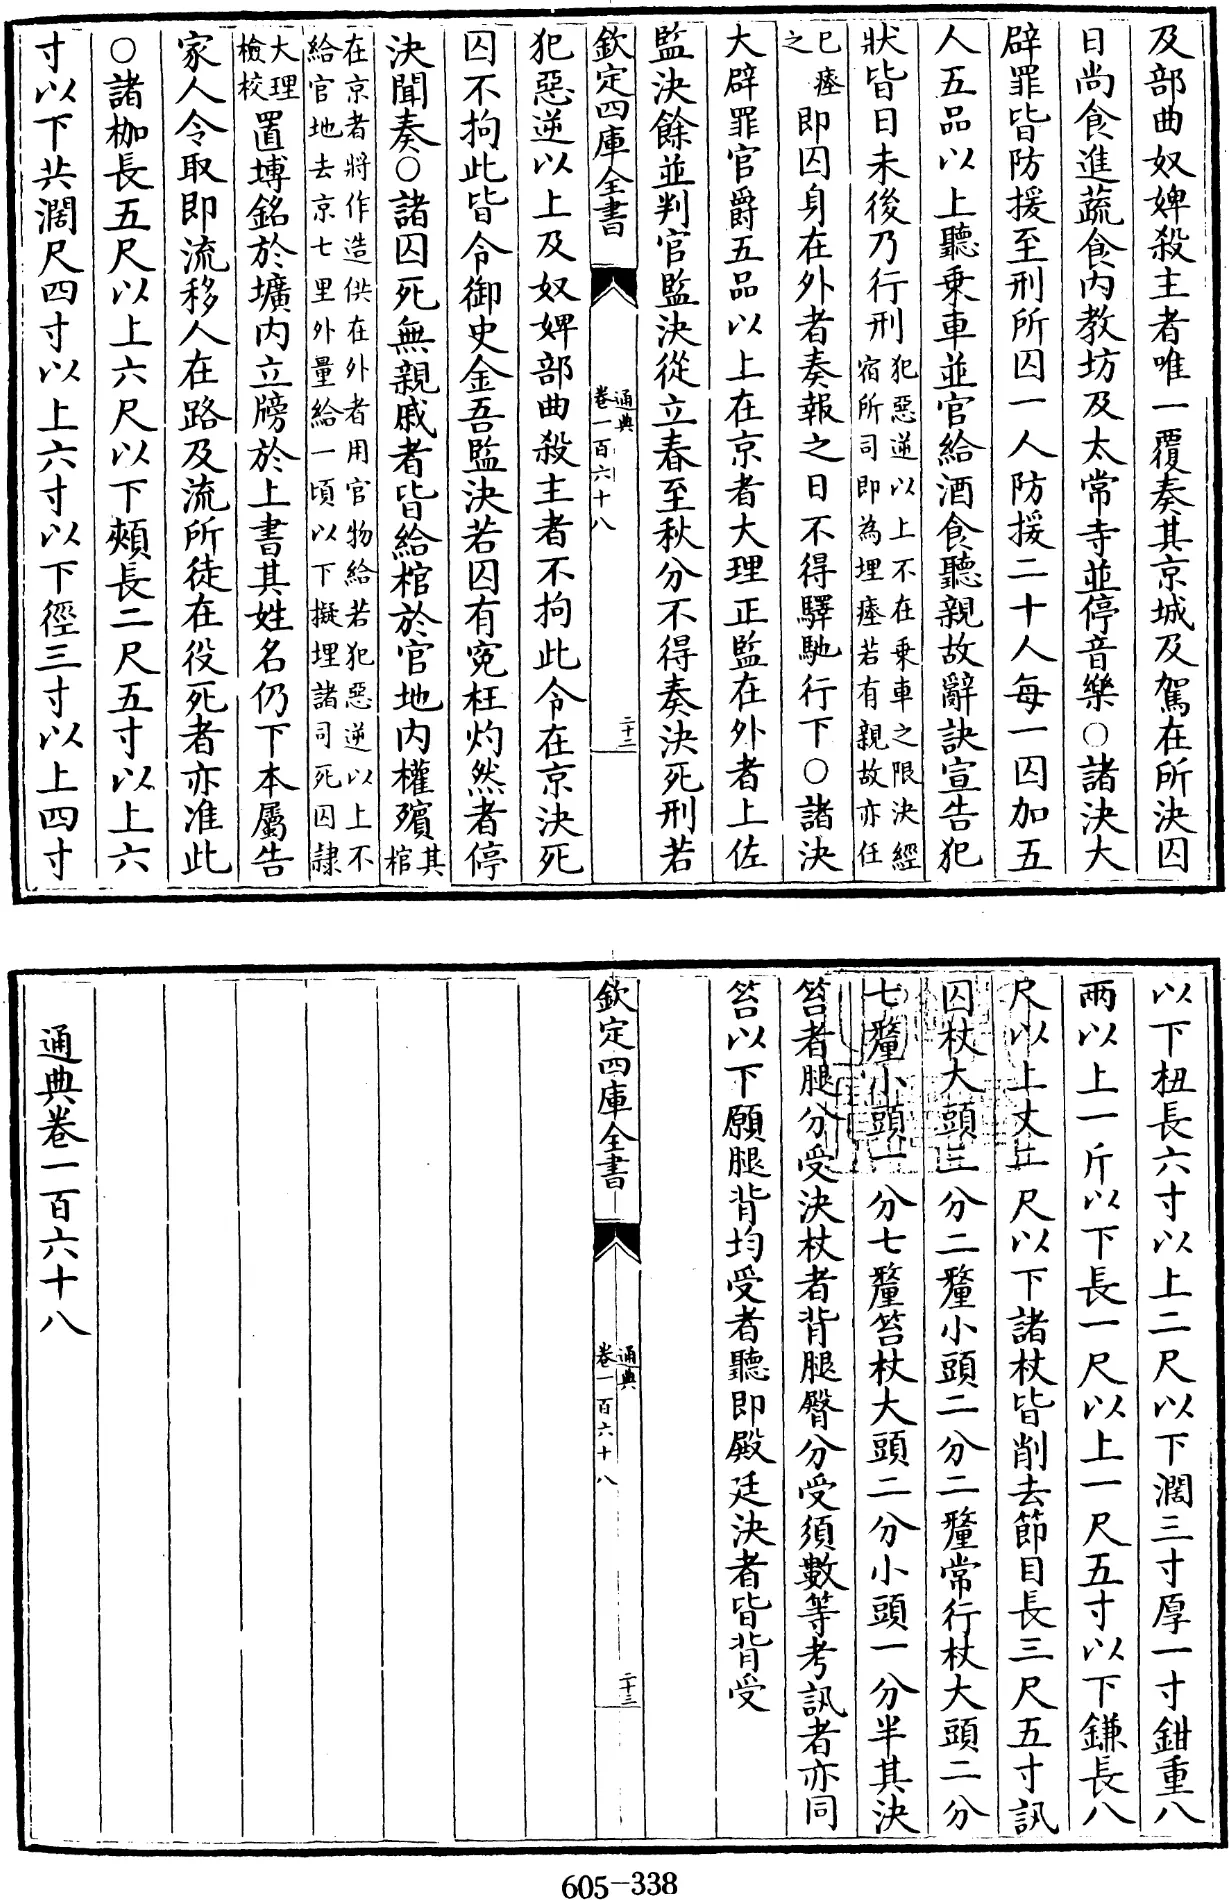 及部曲奴婢殺主者唯一覆奏其京城及駕在所決囚
日尚食進蔬食内教坊及太常寺並停音樂○諸決大
辟罪皆防援至刑所囚一人防援二十人每一囚加五
人五品以上聽乗車並官給酒食聽親故辭訣宣告犯
狀皆日未後乃行刑犯惡逆以上不在乗車之限決經
宿所司即為埋瘞若有親故亦任
已瘞
之即囚身在外者奏報之日不得驛馳行下○諸決
大辟罪官爵五品以上在京者大理正監在外者上佐
監決餘並判官監決從立春至秋分不得奏決死刑若
欽定四庫全書
通典
卷一百六十八
二十二
犯惡逆以上及奴婢部曲殺主者不拘此令在京決死
囚不拘此皆令御史金吾監決若囚有寃枉灼然者停
決聞奏○諸囚死無親戚者皆給棺於官地内權殯其
棺
在京者將作造供在外者用官物給若犯惡逆以上不
給官地去京七里外量給一頃以下擬埋諸司死囚隷
大理
檢校置塼銘於壙内立牓於上書其姓名仍下本屬告
家人令取即流移人在路及流所徒在役死者亦准此
○諸枷長五尺以上六尺以下頰長二尺五寸以上六
寸以下共濶尺四寸以上六寸以下徑三寸以上四寸
以下杻長六寸以上二尺以下濶三寸厚一寸鉗重八
兩以上一斤以下長一尺以上一尺五寸以下鎌長八
尺以上丈二尺以下諸杖皆削去節目長三尺五寸訊
囚杖大頭三分二釐小頭二分二釐常行杖大頭二分
七釐小頭一分七釐笞杖大頭二分小頭一分半其決
笞者腿分受決杖者背腿臀分受須數等考訊者亦同
笞以下願腿背均受者聽即殿廷決者皆背受
欽定四庫全書
通典
卷一百六十八
二十三
通典卷一百六十八
605-338